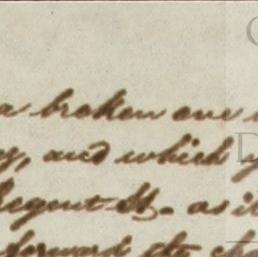 a broken one
, and which
Regent St. as it
forward the